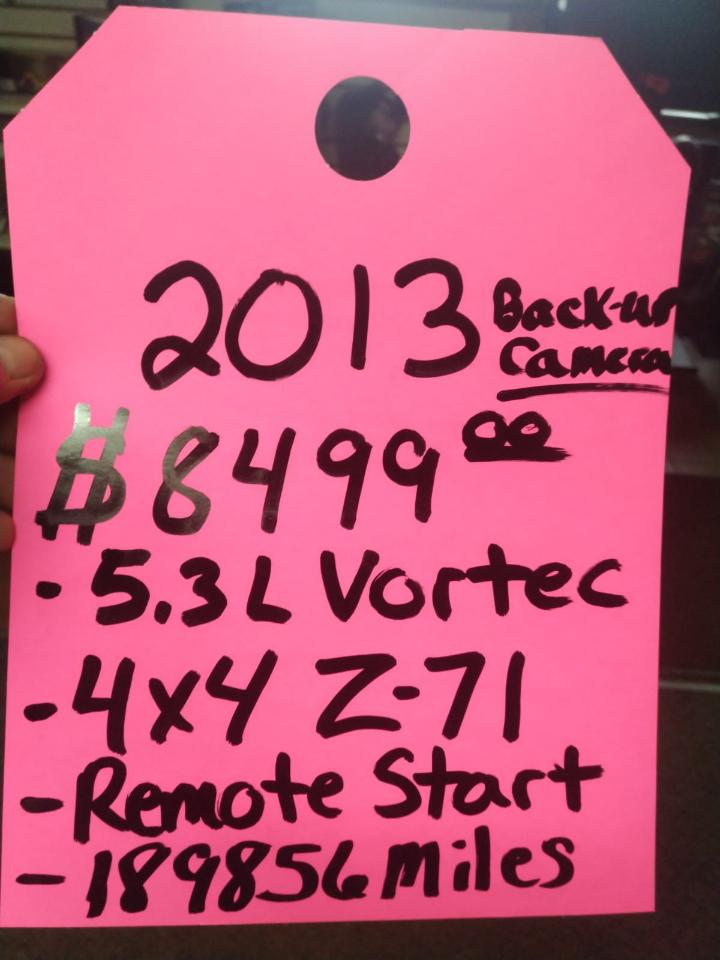 2013
Back-up
Camera
$8499 00
- 5.3L Vortec
- 4x4 Z-71
- Remote Start
- 189856 miles